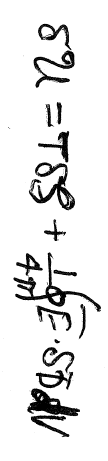 δU = TδS + 1/4π ∫ E̅ · δD̅ dV